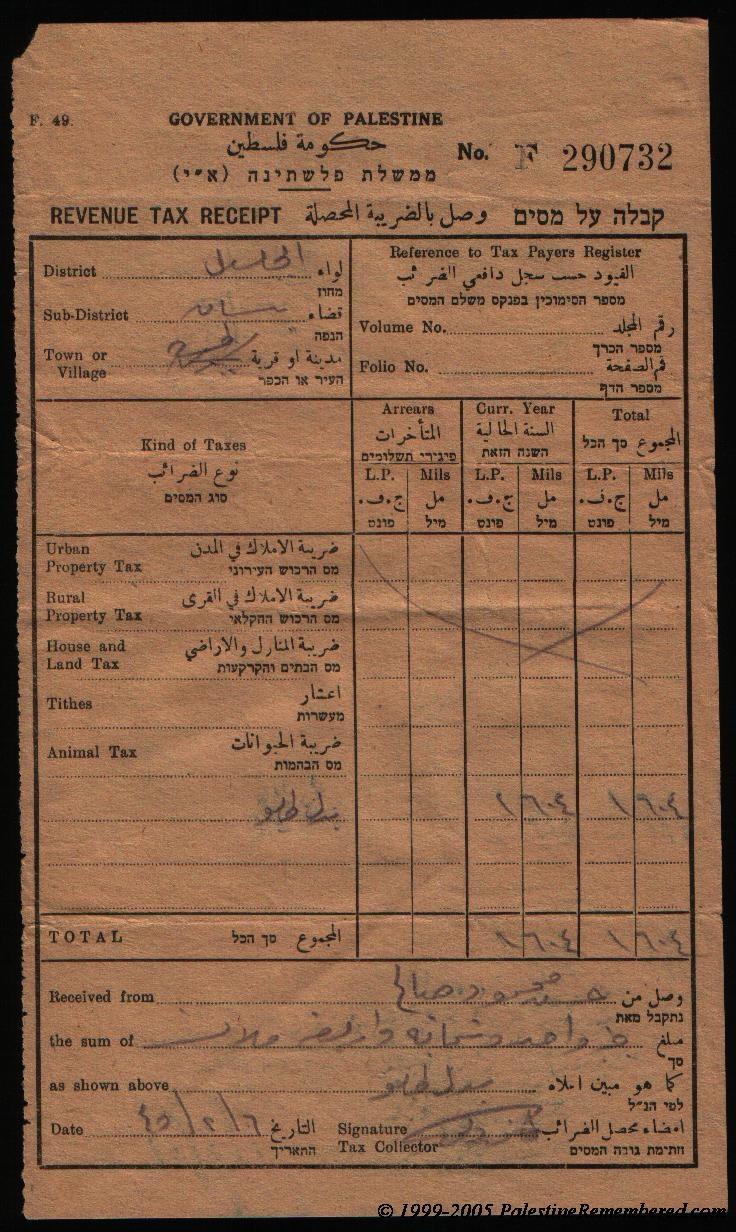 F. 49.
GOVERNMENT OF PALESTINE
حكومة فلسطين
ממשלת פלשתינה (א״י)
No. F 290732
REVENUE TAX RECEIPT وصل بالضريبة المحصلة קבלה על מסים
District الجليل لواء
מחוז
Sub-District بيسان قضاء
הנפה
Town or Village مدينة او قرية
העיר או הכפר
Reference to Tax Payers Register
القيود حسب سجل دافعي الضرائب
מספר הסימוכין בפנקס משלם המסים
Volume No. رقم المجلد
מספר הכרך
Folio No. رقم الصفحة
מספר הדף
Kind of Taxes
نوع الضرائب
סוג המסים
Arrears
المتأخرات
פיגורי תשלומים
Curr. Year
السنة الحالية
השנה הזאת
Total
المجموع סך הכל
L.P. Mils L.P. Mils L.P. Mils
ج.ف. مل ج.ف. مل ج.ف. مل
פונט מיל פונט מיל פונט מיל
Urban Property Tax ضريبة الاملاك في المدن
מס הרכוש העירוני
Rural Property Tax ضريبة الاملاك في القرى
מס הרכוש החקלאי
House and Land Tax ضريبة المنازل والاراضي
מס הבתים והקרקעות
Tithes اعشار
מעשרות
Animal Tax ضريبة الحيوانات
מס הבהמות
١٦٠٤ ١٦٠٤
TOTAL סך הכל المجموع ١٦٠٤ ١٦٠٤
Received from محمود صالح وصل من
נתקבל מאת
the sum of واحد وستماية واربعة ملات مبلغ
סך
as shown above كما هو مبين اعلاه
לפי הנ״ל
Date ٤٥/٢/٦ التاريخ
התאריך
Signature Tax Collector امضاء محصل الضرائب
חתימת גובה המסים
© 1999-2005 PalestineRemembered.com